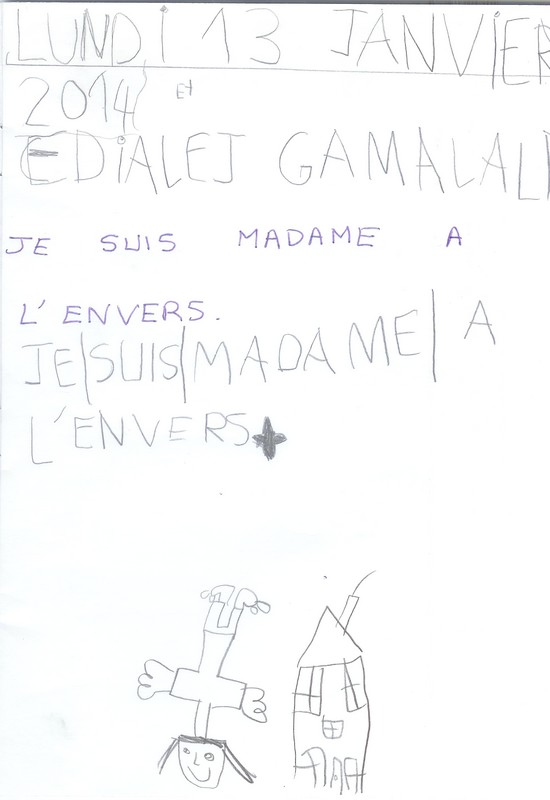 LUNDi 13 JANViER
2014 Et
EDiALEJ GAMALALI
JE SUIS MADAME A
L'ENVERS.
JE|SUIS|MADAME| A
L'ENVERS